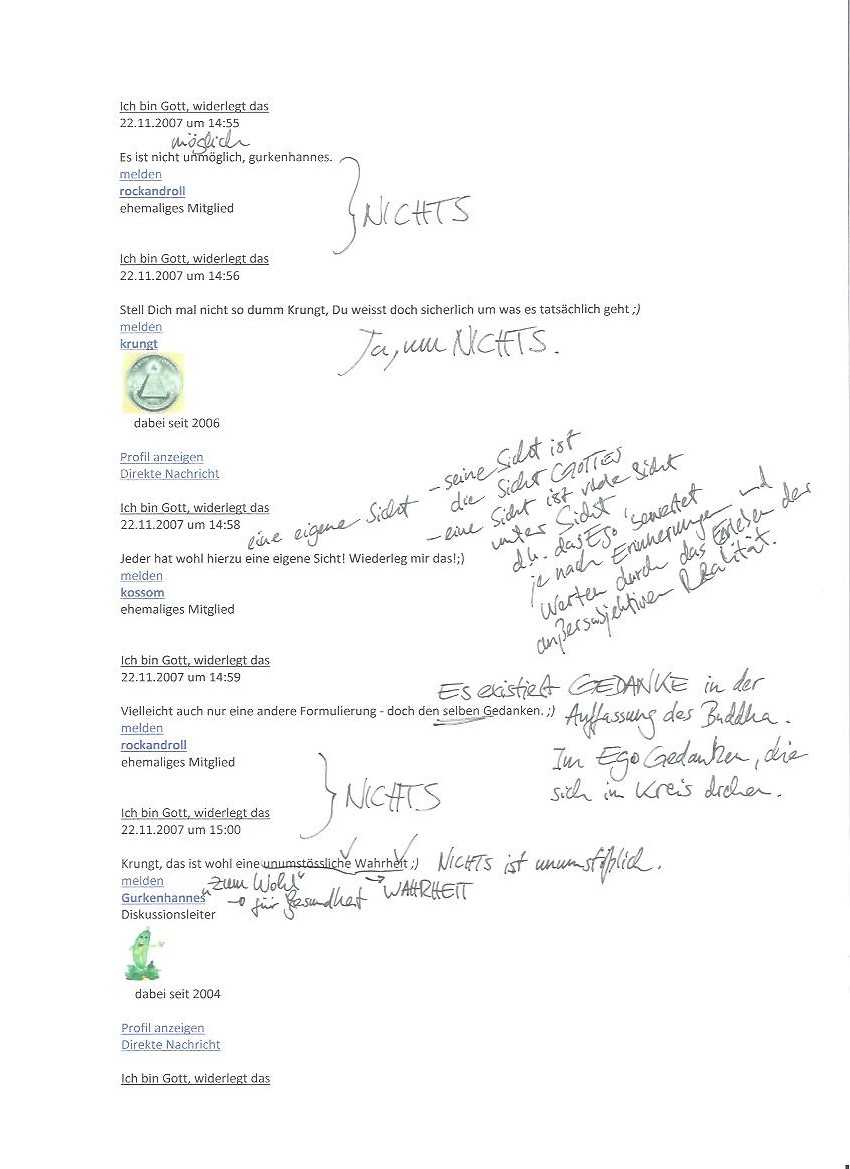 Ich bin Gott, widerlegt das
22.11.2007 um 14:55
möglich
Es ist nicht unmöglich, gurkenhannes.
melden
rockandroll
ehemaliges Mitglied
NICHTS
Ich bin Gott, widerlegt das
22.11.2007 um 14:56
Stell Dich mal nicht so dumm Krungt, Du weisst doch sicherlich um was es tatsächlich geht ;)
melden
Ja, um NICHTS.
krungt
dabei seit 2006
Profil anzeigen
Direkte Nachricht
Ich bin Gott, widerlegt das
22.11.2007 um 14:58
eine eigene Sicht
- seine Sicht ist
die Sicht GOTTES
- eine Sicht ist viele Sicht
unter Sicht
d.h. das Ego bewertet
je nach Erinnerungen und
Werten durch das Erleben der
außersubjektiven Realität.
Jeder hat wohl hierzu eine eigene Sicht! Wiederleg mir das!;)
melden
kossom
ehemaliges Mitglied
Ich bin Gott, widerlegt das
22.11.2007 um 14:59
Es existiert GEDANKE in der
Auffassung des Buddha.
Im Ego Gedanken, die
sich im Kreis drehen.
Vielleicht auch nur eine andere Formulierung - doch den selben Gedanken. ;)
melden
rockandroll
ehemaliges Mitglied
NICHTS
Ich bin Gott, widerlegt das
22.11.2007 um 15:00
Krungt, das ist wohl eine unumstössliche Wahrheit ;) NICHTS ist unumstößlich.
melden
"Zum Wohl" → WAHRHEIT
für Gesundheit
Gurkenhannes
Diskussionsleiter
dabei seit 2004
Profil anzeigen
Direkte Nachricht
Ich bin Gott, widerlegt das